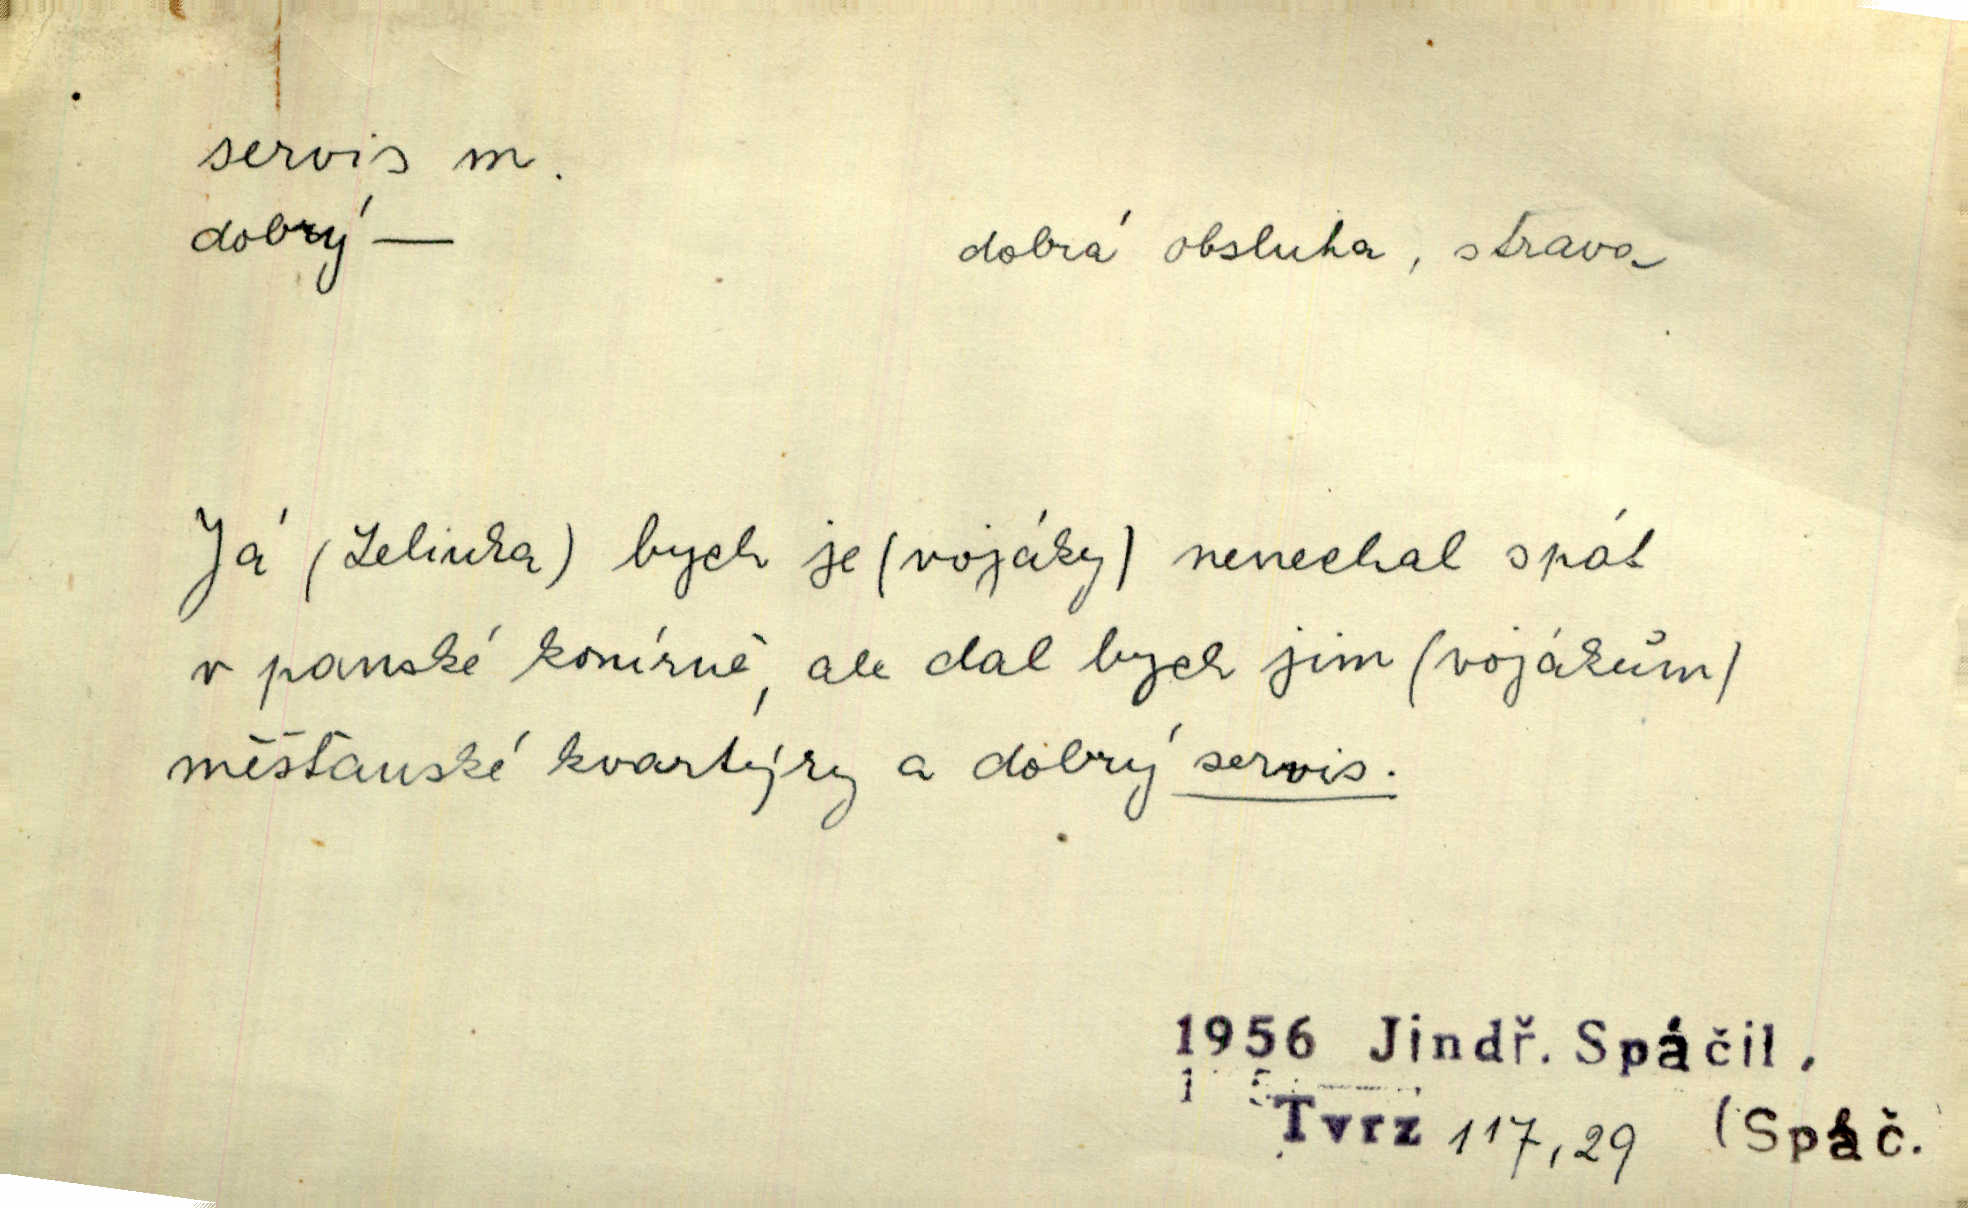 servis m.
dobrý — dobrá obsluha, strava
Já (Zelinka) bych je (vojáky) nenechal spát
v panské konírně, ale dal bych jim (vojákům)
měšťanské kvartýry a dobrý servis.
1956 Jindř. Spáčil,
Tvrz 117,29 (Spáč.